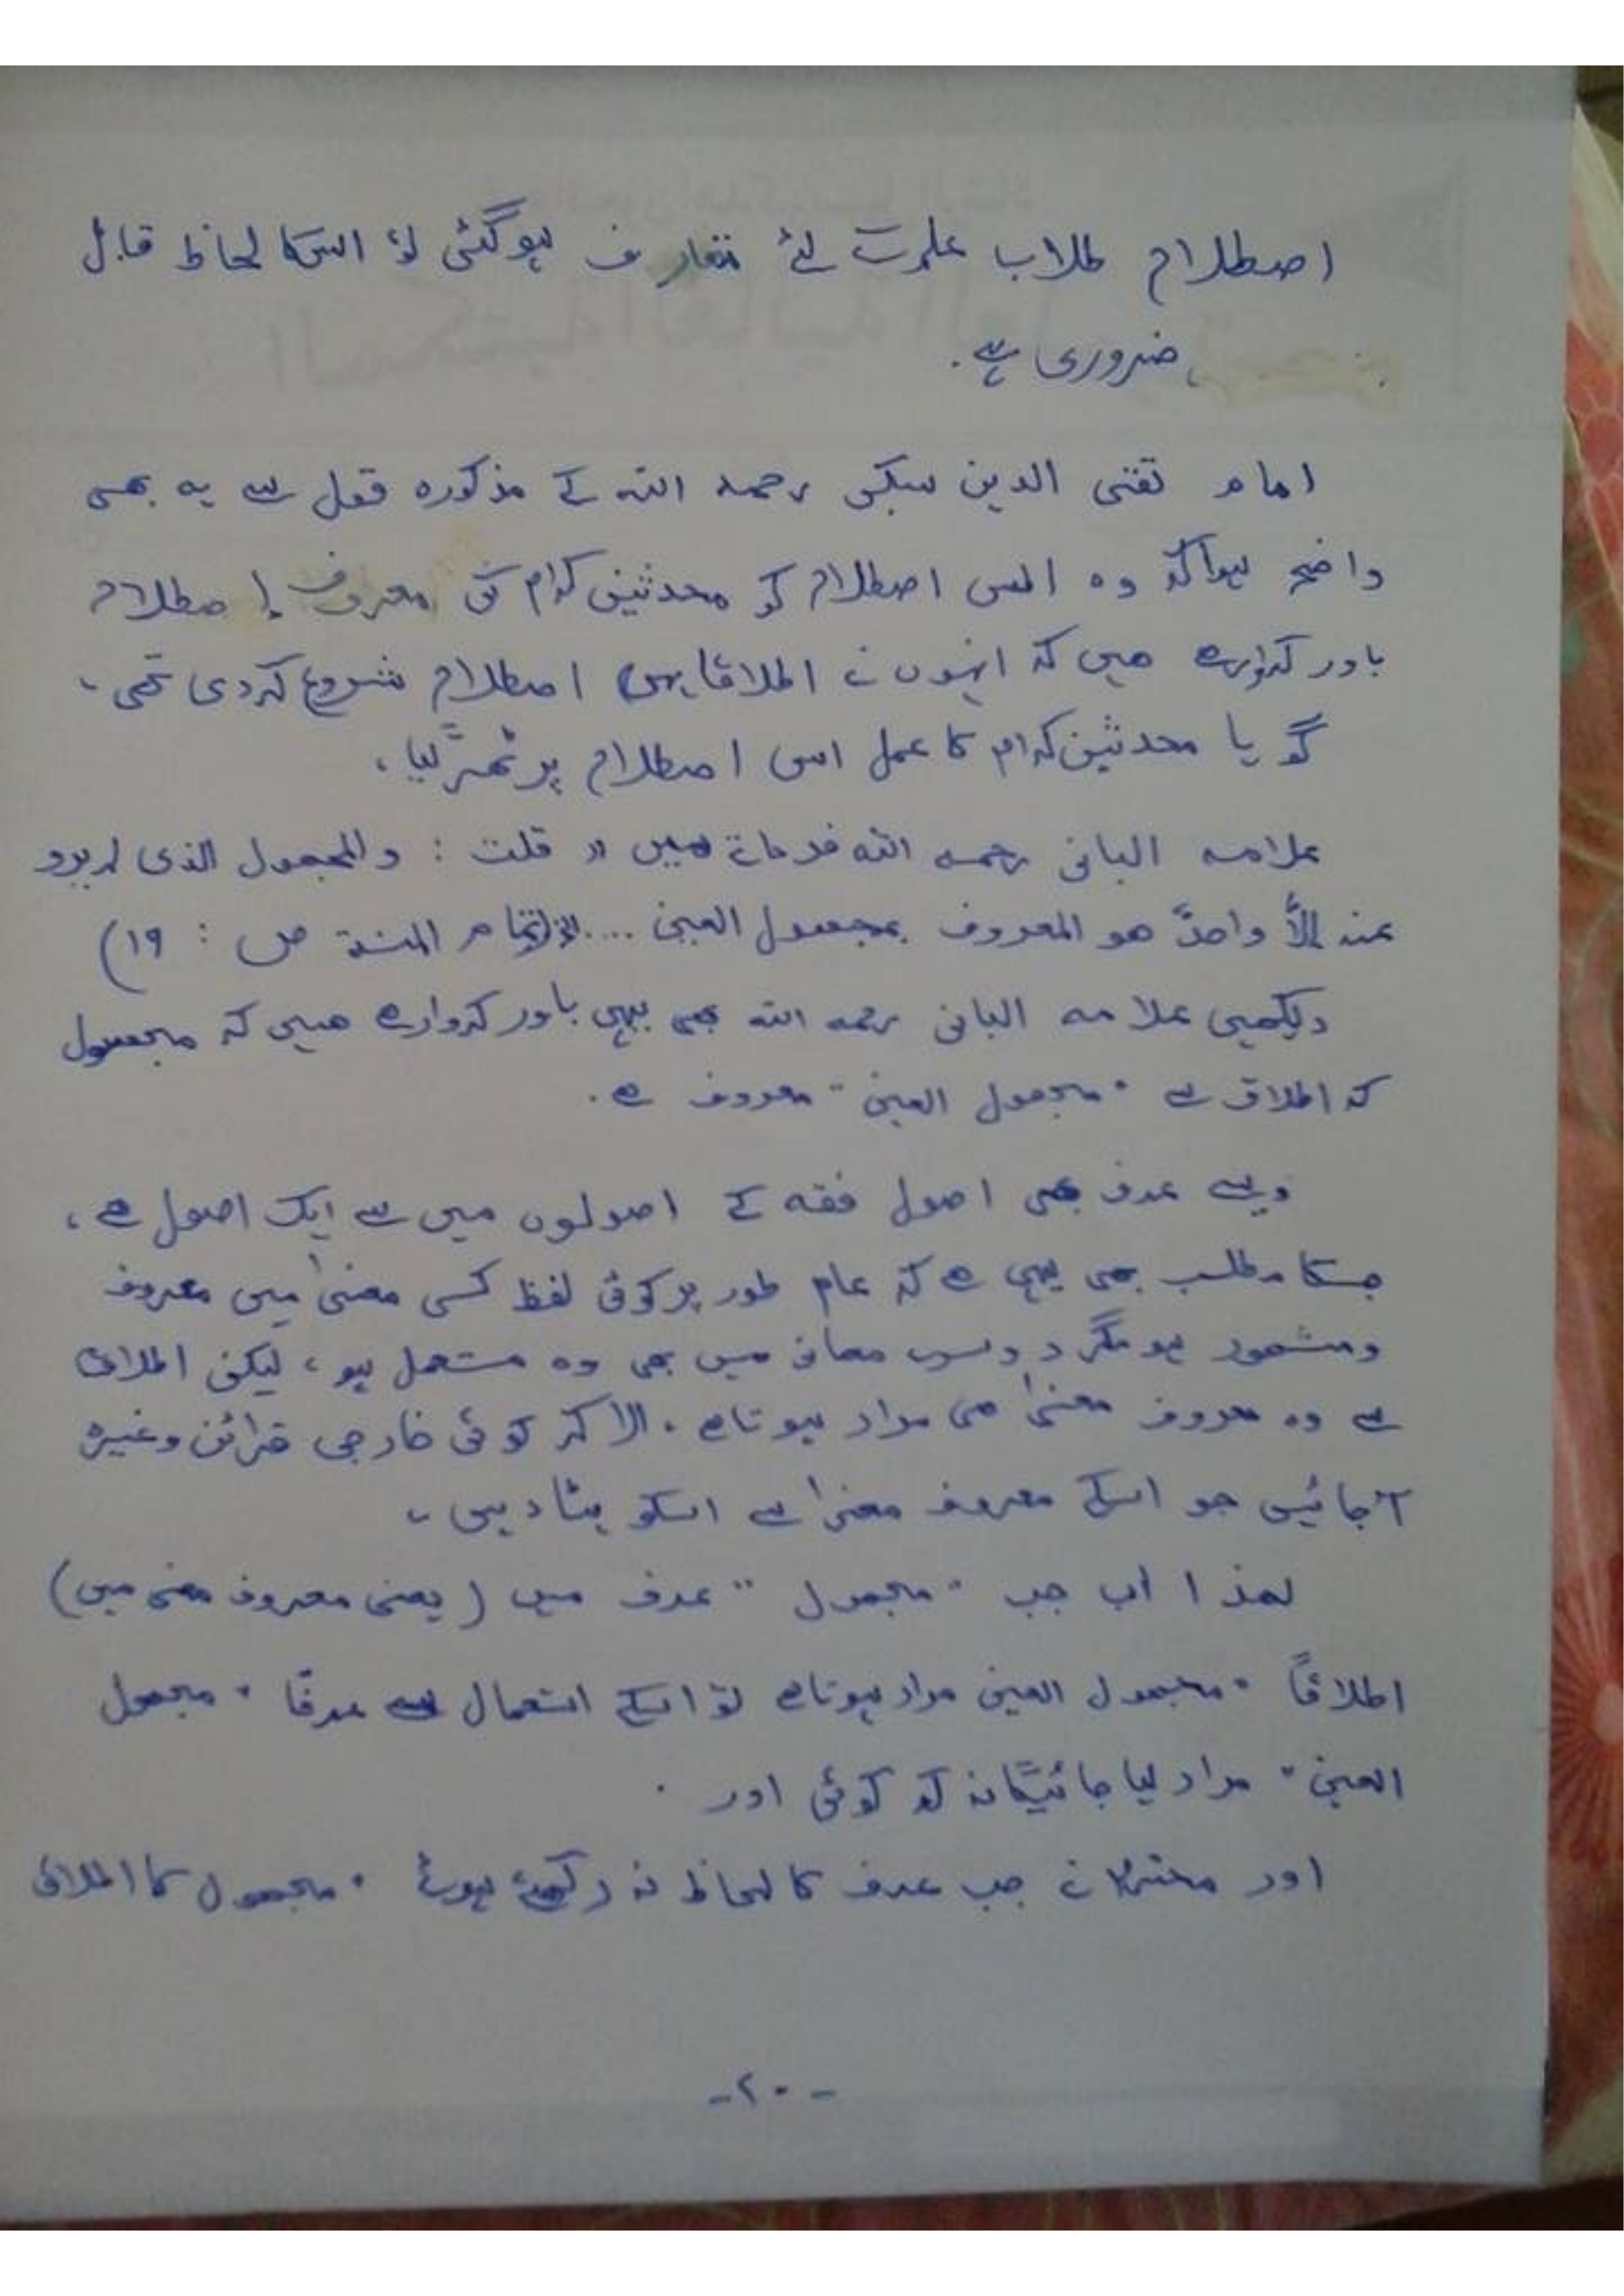 اصطلاح طلاب علم کے لئے متعارف ہوگئی تو اسکا لحاظ قابل
ضروری ہے۔
امام تقی الدین سبکی رحمہ اللہ کے مذکورہ قول سے یہ بھی
واضح ہوا کہ وہ اس اصطلاح کو محدثین کرام کی معروف اصطلاح
باور کروارہے ھیں کہ انہوں نے اطلاقا یہی اصطلاح شروع کردی تھی۔
گویا محدثین کرام کا عمل اس اصطلاح پر ٹھر گیا،
علامہ البانی رحمہ اللہ فرماتے ہیں " قلت : والمجھول الذی لم یرو
عنہ الاَّ واحدٌ ھو المعروف بمجھول العین .... الخ (تمام المنۃ ص : ١٩)
دیکھیں علامہ البانی رحمہ اللہ بھی یہی باور کروارہے ھیں کہ مجھول
کہ اطلاق سے "مجھول العین" معروف ہے۔
ویسے عرف بھی اصول فقہ کے اصولوں میں سے ایک اصول ھے،
جسکا مطلب بھی یہی ھے کہ عام طور پر کوئی لفظ کسی معنیٰ میں معروف
ومشھور ہو مگر دوسرے معانی میں بھی وہ مستعمل ہو، لیکن اطلاق
سے وہ معروف معنیٰ ھی مراد ہوتا ہے۔ الا کہ کوئی خارجی قرائن وغیرہ
آجائیں جو اسکے معروف معنیٰ سے اسکو ہٹا دیں۔
لھذا اب جب "مجھول" عرف میں (یعنی معروف معنی میں)
اطلاقاً "مجھول العین مراد ہوتا ہے تو اسکے استعمال سے عرفا "مجھول
العین" مراد لیا جائیگا نہ کہ کوئی اور۔
اور محترم نے جب عرف کا لحاظ نہ رکھتے ہوئے "مجھول کا اطلاق
-٢٠-